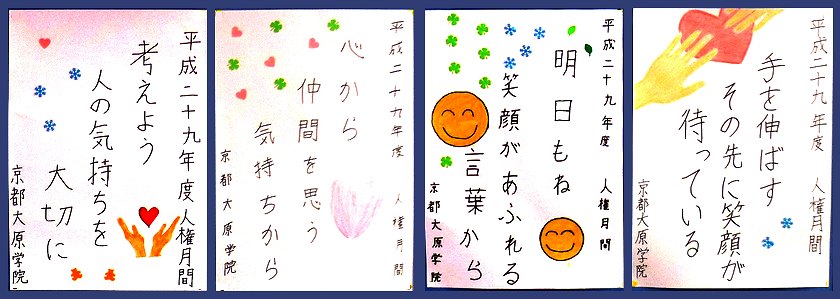 平成二十九年度人権月間
考えよう
人の気持ちを
大切に
京都大原学院
平成二十九年度 人権月間
心から
仲間を思う
気持ちから
京都大原学院
平成二十九年度 人権月間
明日もね
笑顔があふれる
言葉から
京都大原学院
平成二十九年度 人権月間
手を伸ばす
その先に笑顔が
待っている
京都大原学院